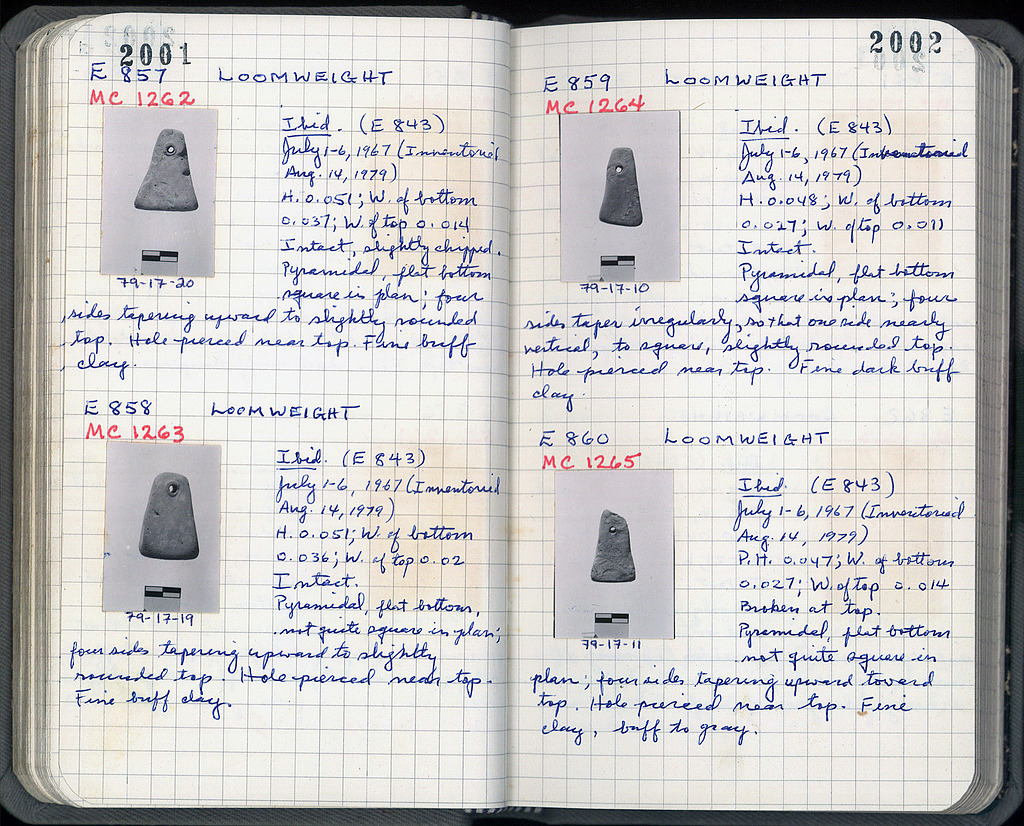 2001
E 857 LOOMWEIGHT
MC 1262
Ibid. (E 843)
July 1-6, 1967 (Inventoried
Aug. 14, 1979)
H. 0.051; W. of bottom
0.037; W. of top 0.014
Intact, slightly chipped.
Pyramidal, flat bottom
79-17-20
square in plan; four
sides tapering upward to slightly rounded
top. Hole pierced near top. Fine buff
clay.
E 858 LOOMWEIGHT
MC 1263
Ibid. (E 843)
July 1-6, 1967 (Inventoried
Aug. 14, 1979)
H. 0.051; W. of bottom
0.036; W. of top 0.02
Intact.
Pyramidal, flat bottom,
79-17-19
not quite square in plan;
four sides tapering upward to slightly
rounded top. Hole pierced near top.
Fine buff clay.
2002
E 859 LOOMWEIGHT
MC 1264
Ibid. (E 843)
July 1-6, 1967 (Inventoried
Aug. 14, 1979)
H. 0.048; W. of bottom
0.027; W. of top 0.011
Intact.
Pyramidal, flat bottom
79-17-10
square in plan; four
sides taper irregularly, so that one side nearly
vertical, to square, slightly rounded top.
Hole pierced near top. Fine dark buff
clay.
E 860 LOOMWEIGHT
MC 1265
Ibid. (E 843)
July 1-6, 1967 (Inventoried
Aug. 14, 1979)
P.H. 0.047; W. of bottom
0.027; W. of top 0.014
Broken at top.
Pyramidal, flat bottom
79-17-11
not quite square in
plan; four sides tapering upward toward
top. Hole pierced near top. Fine
clay, buff to gray.